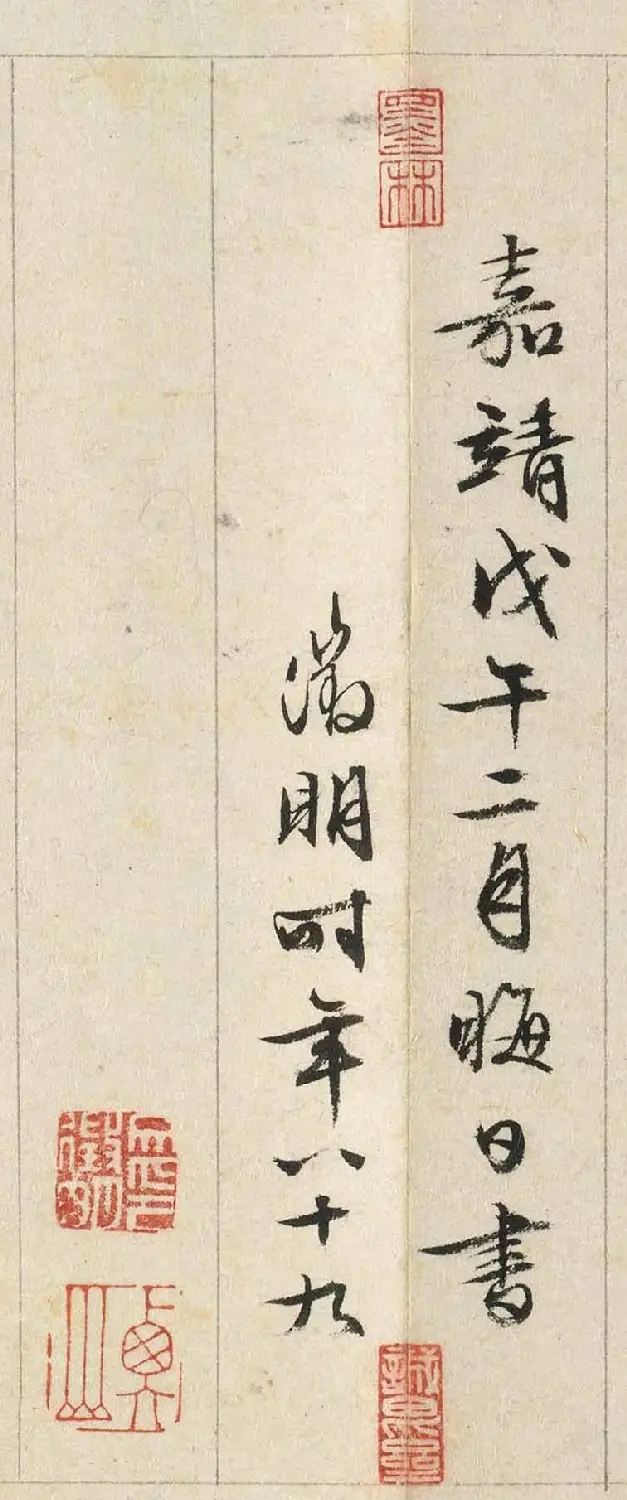 嘉靖戊午二月晦日書
徵明時年八十九
墨林